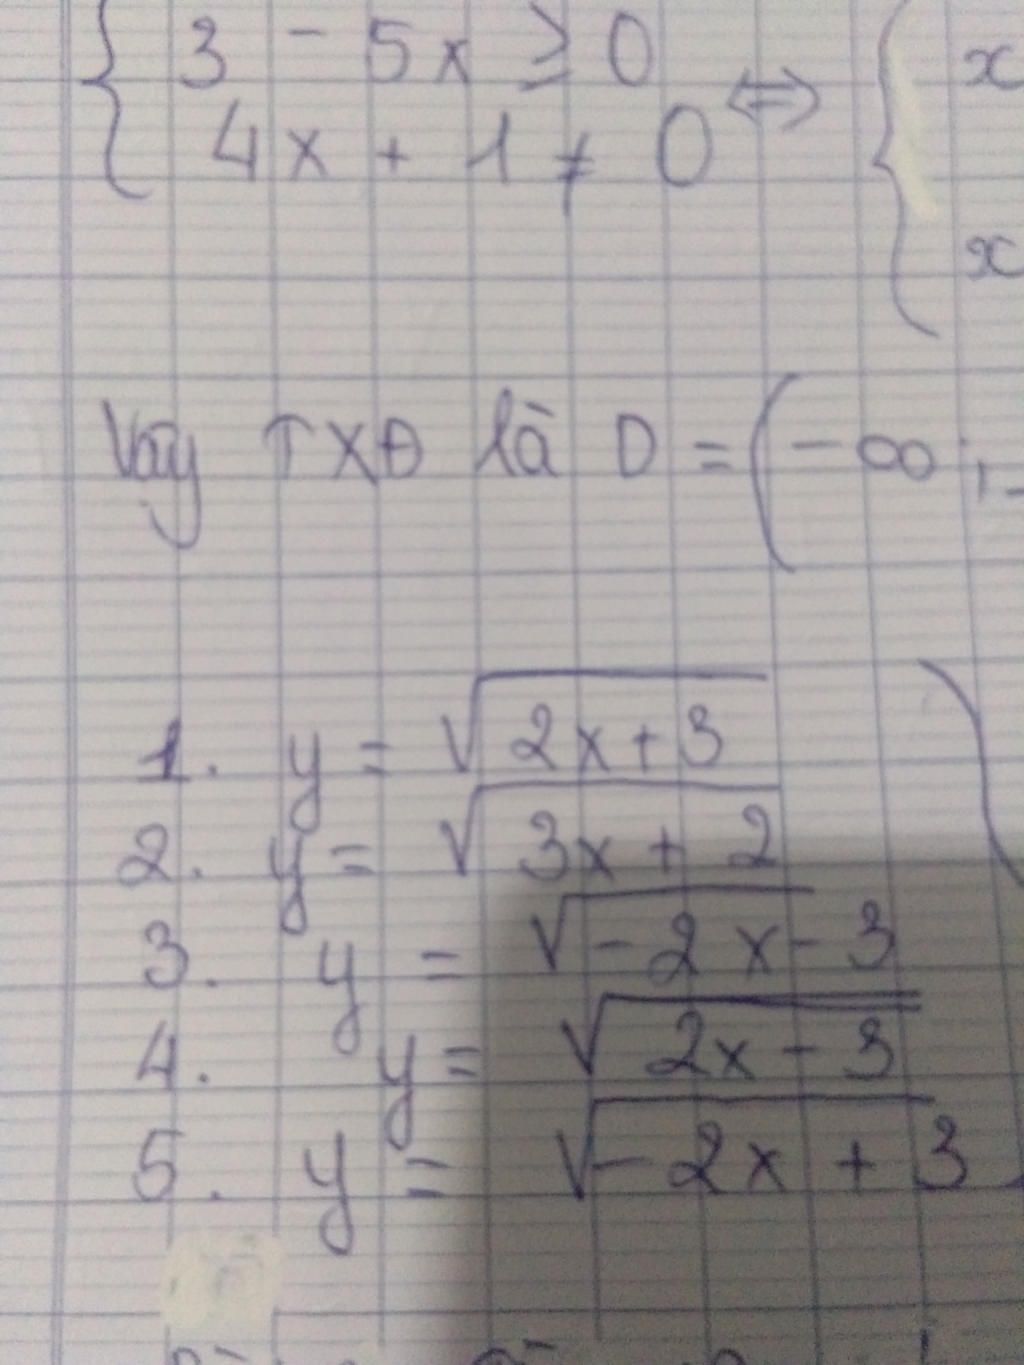 { 3 - 5x ≥ 0 ⇔ { x
4x + 1 ≠ 0 x
Vậy TXĐ là D = (-∞ ;
1. y = √2x+3
2. y = √3x + 2
3. y = √-2x - 3
4. y = √2x - 3
5. y = √-2x + 3